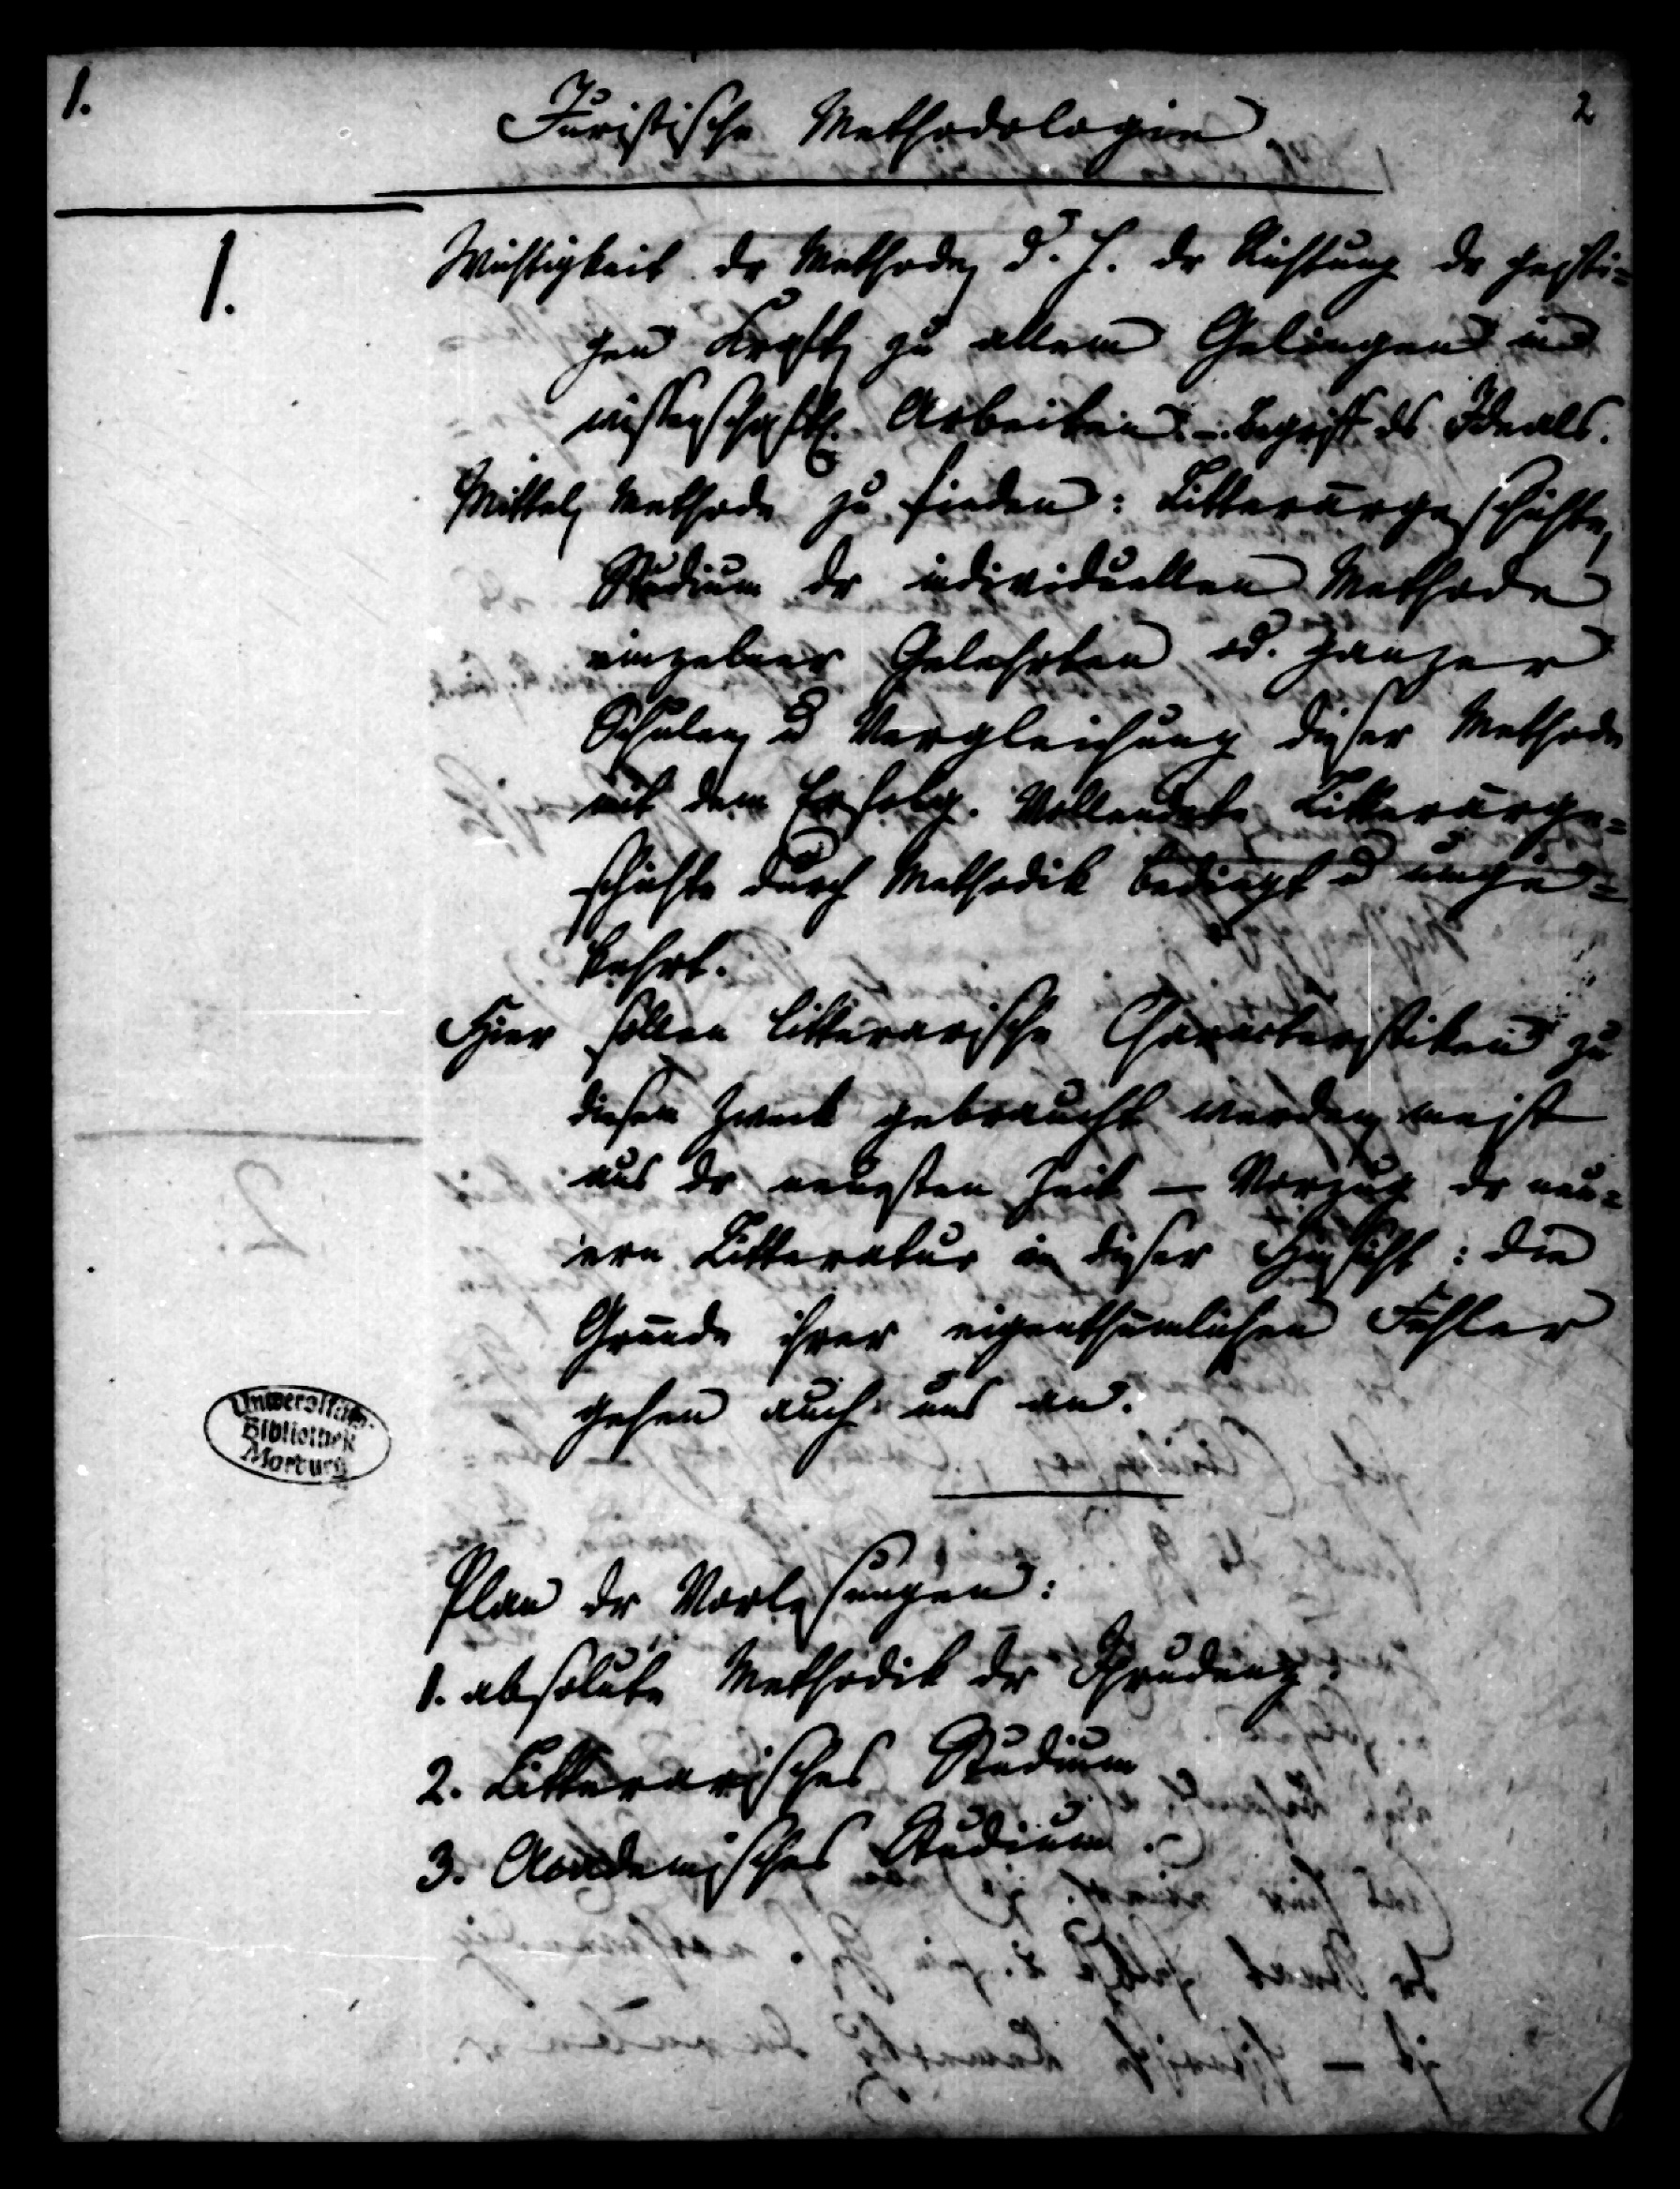 1.
2
Juristische Methodologie.
1.
Wichtigkeit dr Methode, d. h. dr Richtung dr geisti=
gen Kraft, zu allem Gelingen in
wissenschaftl. Arbeiten. – Begriff ds Ideals.
Mittel, Methode zu finden: Litterärgeschichte,
Studium dr individuellen Methode
einzelner Gelehrten od. ganzer
Schulen, u Vergleichung dieser Methode
mit dem Erfolg. Vollendete Litterärge=
schichte durch Methodik bedingt u umge=
kehrt.
Hier sollen litterarische Characteristiken zu
diesem Zweck gebraucht werden, meist
aus dr neuesten Zeit – Vorzug dr neu=
ern Litteratur in dieser Hinsicht: die
Gründe ihrer eigenthümlichen Fehler
gehen auch uns an.
Universitäts-
Bibliothek
Marburg
Plan dr Vorlesungen:
1. absolute Methodik dr Jprudenz.
2. Litterarisches Studium
3. Academisches Studium.